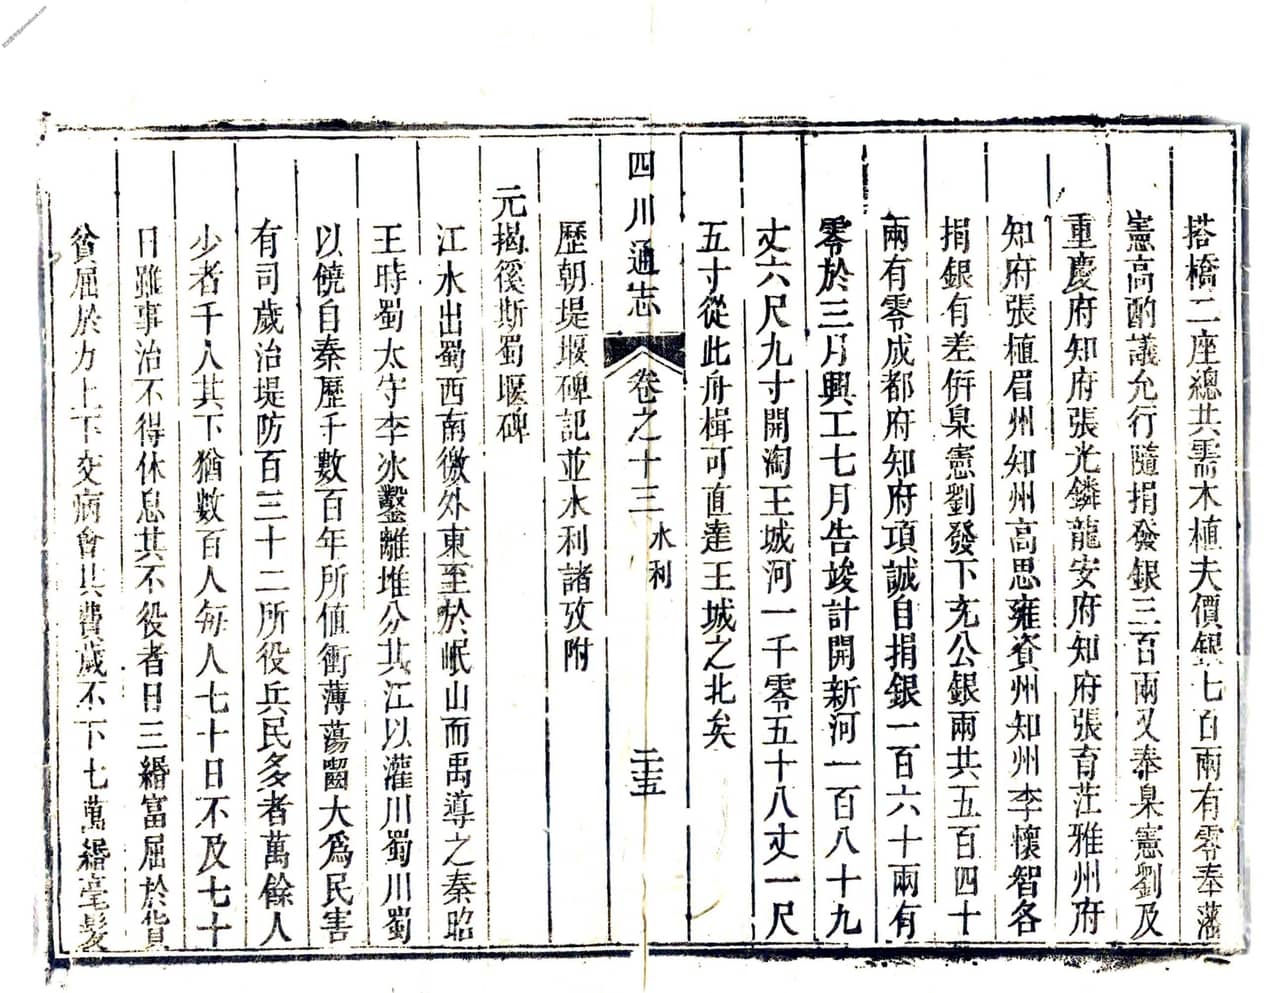 搭橋二座總共需木植夫價銀七百兩有零奉藩
憲高酌議允行隨捐發銀三百兩又奉臬憲劉及
重慶府知府張光鏻龍安府知府張育茳雅州府
知府張植眉州知州高思雍資州知州李懷智各
捐銀有差併臬憲劉發下充公銀兩共五百四十
兩有零成都府知府項誠自捐銀一百六十兩有
零於三月興工七月告竣計開新河一百八十九
丈六尺九寸開淘王城河一千零五十八丈一尺
五寸從此舟楫可直達王城之北矣
四川通志 卷之十三 水利 二十五
歷朝堤堰碑記並水利諸攷附
元揭傒斯蜀堰碑
江水出蜀西南徼外東至於岷山而禹導之秦昭
王時蜀太守李冰鑿離堆分其江以灌川蜀川蜀
以饒自秦歷千數百年所值衝薄蕩齧大爲民害
有司歲治堤防百三十二所役兵民多者萬餘人
少者千人其下猶數百人每人七十日不及七十
日雖事治不得休息其不役者日三緡富屈於貨
貧屈於力上下交病會其費歲不下七萬緡毫髮